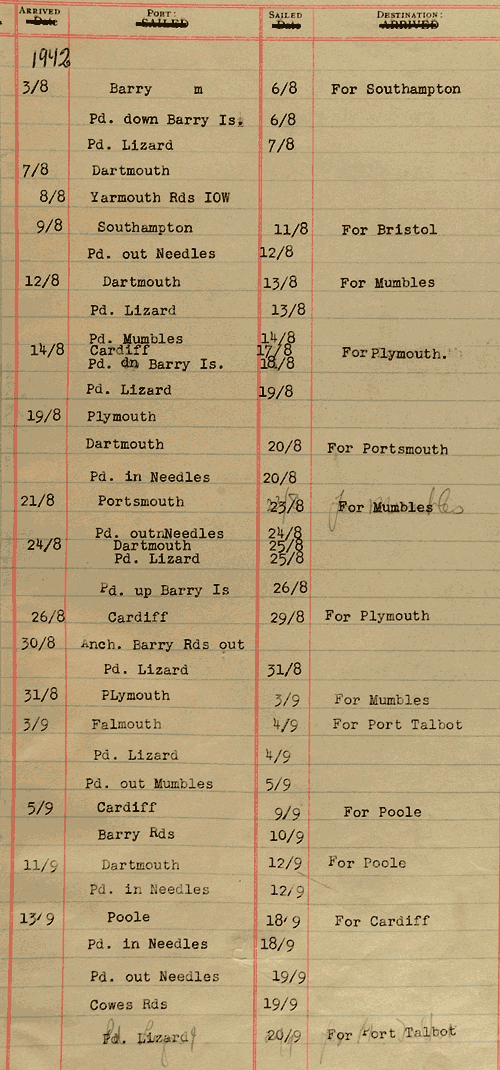 ARRIVED PORT: SAILED DESTINATION:
Date SAILED Date ARRIVED
1942
3/8 Barry m 6/8 For Southampton
Pd. down Barry Is. 6/8
Pd. Lizard 7/8
7/8 Dartmouth
8/8 Yarmouth Rds IOW
9/8 Southampton 11/8 For Bristol
Pd. out Needles 12/8
12/8 Dartmouth 13/8 For Mumbles
Pd. Lizard 13/8
Pd. Mumbles 14/8
14/8 Cardiff 17/8 For Plymouth.
Pd. dn Barry Is. 18/8
Pd. Lizard 19/8
19/8 Plymouth
Dartmouth 20/8 For Portsmouth
Pd. in Needles 20/8
21/8 Portsmouth 23/8 For Mumbles
Pd. outnNeedles 24/8
24/8 Dartmouth 25/8
Pd. Lizard 25/8
Pd. up Barry Is 26/8
26/8 Cardiff 29/8 For Plymouth
30/8 Anch. Barry Rds out
Pd. Lizard 31/8
31/8 PLymouth 3/9 For Mumbles
3/9 Falmouth 4/9 For Port Talbot
Pd. Lizard 4/9
Pd. out Mumbles 5/9
5/9 Cardiff 9/9 For Poole
Barry Rds 10/9
11/9 Dartmouth 12/9 For Poole
Pd. in Needles 12/9
13/9 Poole 18/9 For Cardiff
Pd. in Needles 18/9
Pd. out Needles 19/9
Cowes Rds 19/9
Pd. Lizard 20/9 For Port Talbot